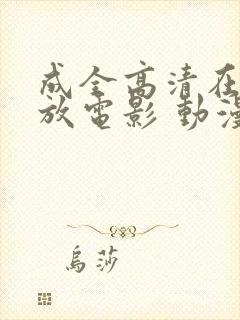 成全高清在
放電影 動漫
烏莎